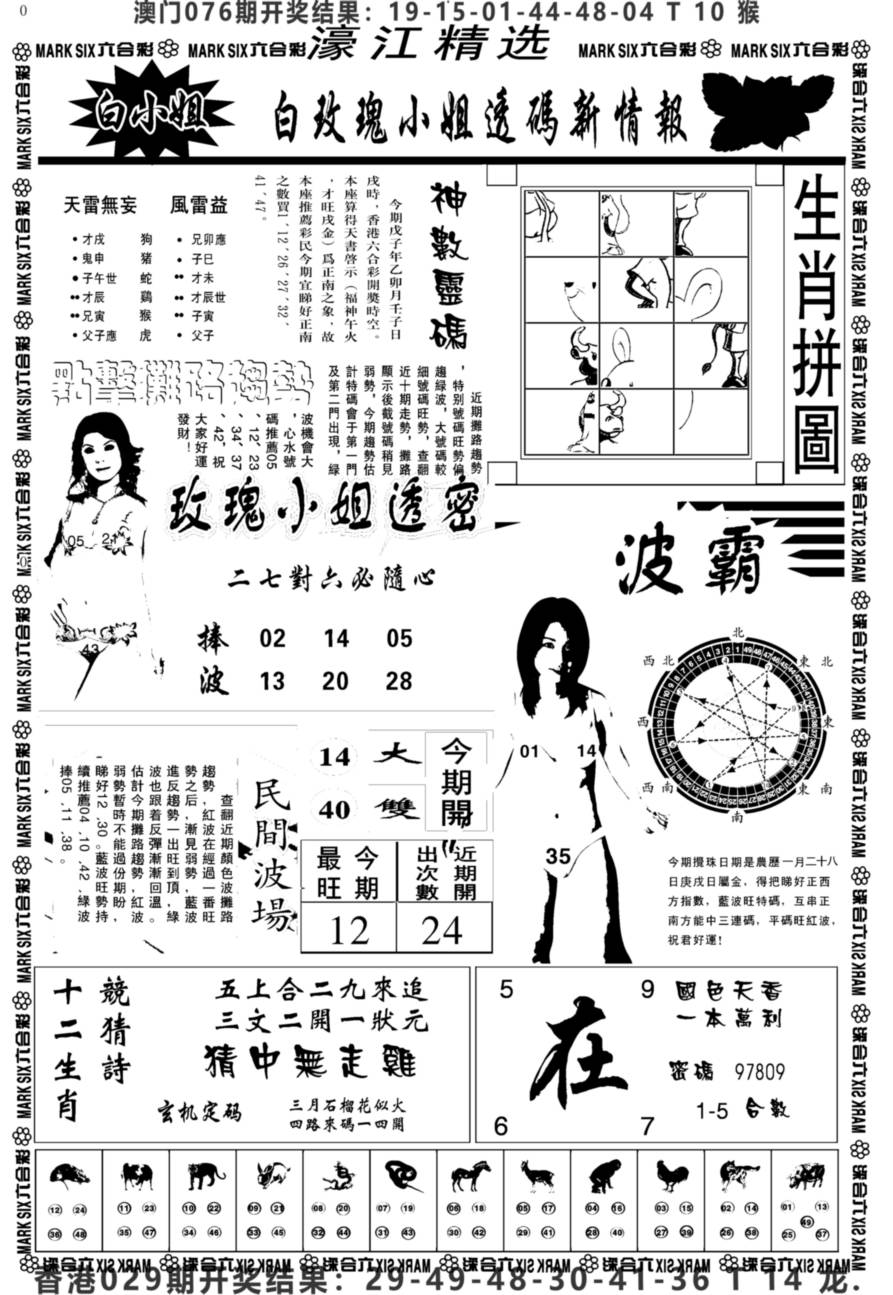 0
澳门076期开奖结果：19-15-01-44-48-04 T 10 猴
MARK SIX六合彩 MARK SIX六合彩 濠江精选 MARK SIX六合彩 MARK SIX六合彩
白小姐
白玫瑰小姐透碼新情報
天雷無妄 風雷益
•才戌 狗 •兄卯應
•鬼申 豬 •子巳
●子午世 蛇 ••才未
••才辰 鷄 ••才辰世
••兄寅 猴 ••子寅
•父子應 虎 •父子
神數靈碼
今期戊子年乙卯月壬子日
戌時，香港六合彩開獎時空。
本座算得天書啓示（福神午火
，才旺戌金）爲正南之象，故
本座推薦彩民今期宜睇好正南
之數買1´12´26´27´32´
41´47。
生肖拼圖
點擊攤路趨勢
近期攤路趨勢
，特別號碼旺勢偏
趨緑波，大號碼較
細號碼旺勢，查翻
近十期走勢，攤路
顯示後截號碼稍見
弱勢，今期趨勢估
計特碼會于第一門
及第二門出現，緑
波機會大
，心水號
碼推薦05
、12、23
、34、37
、42，祝
大家好運
發財！
05 21
43
玫瑰小姐透密
二七對六必隨心
捧 02 14 05
波 13 20 28
波霸
01 14
35
北
西北 東北
西 東
西南 東南
南
今期攪珠日期是農歷一月二十八
日庚戌日屬金，得把睇好正西
方指數，藍波旺特碼，互串正
南方能中三連碼，平碼旺紅波，
祝君好運!
民間波場
查翻近期顏色波攤路
趨勢，紅波在經過一番旺
勢之后，漸見弱勢，藍波
進反趨勢一出旺到頂，綠
波也跟着反彈漸漸回溫。
估計今期攤路趨勢，紅波
弱勢暫時不能過份期盼，
睇好12.30。藍波旺勢持
續推薦04.10.42，綠波
捧05.11.38。
14 大
40 雙
今期開
最旺 今期
出次數 近期開
12 24
十二生肖
競猜詩
五上合二九來追
三文二開一狀元
猜中無走雞
玄机定码
三月石榴花似火
四路來碼一四開
5 9
在
6 7
國色天香
一本萬利
密碼 97809
1-5 合數
12 24 11 23 10 22 09 21 08 20 07 19 06 18 05 17 04 16 03 15 02 14 01 13
49
36 48 35 47 34 46 33 45 32 44 31 43 30 42 29 41 28 40 27 39 26 38 25 37
香港029期开奖结果：29-49-48-30-41-36 T 14 龙.